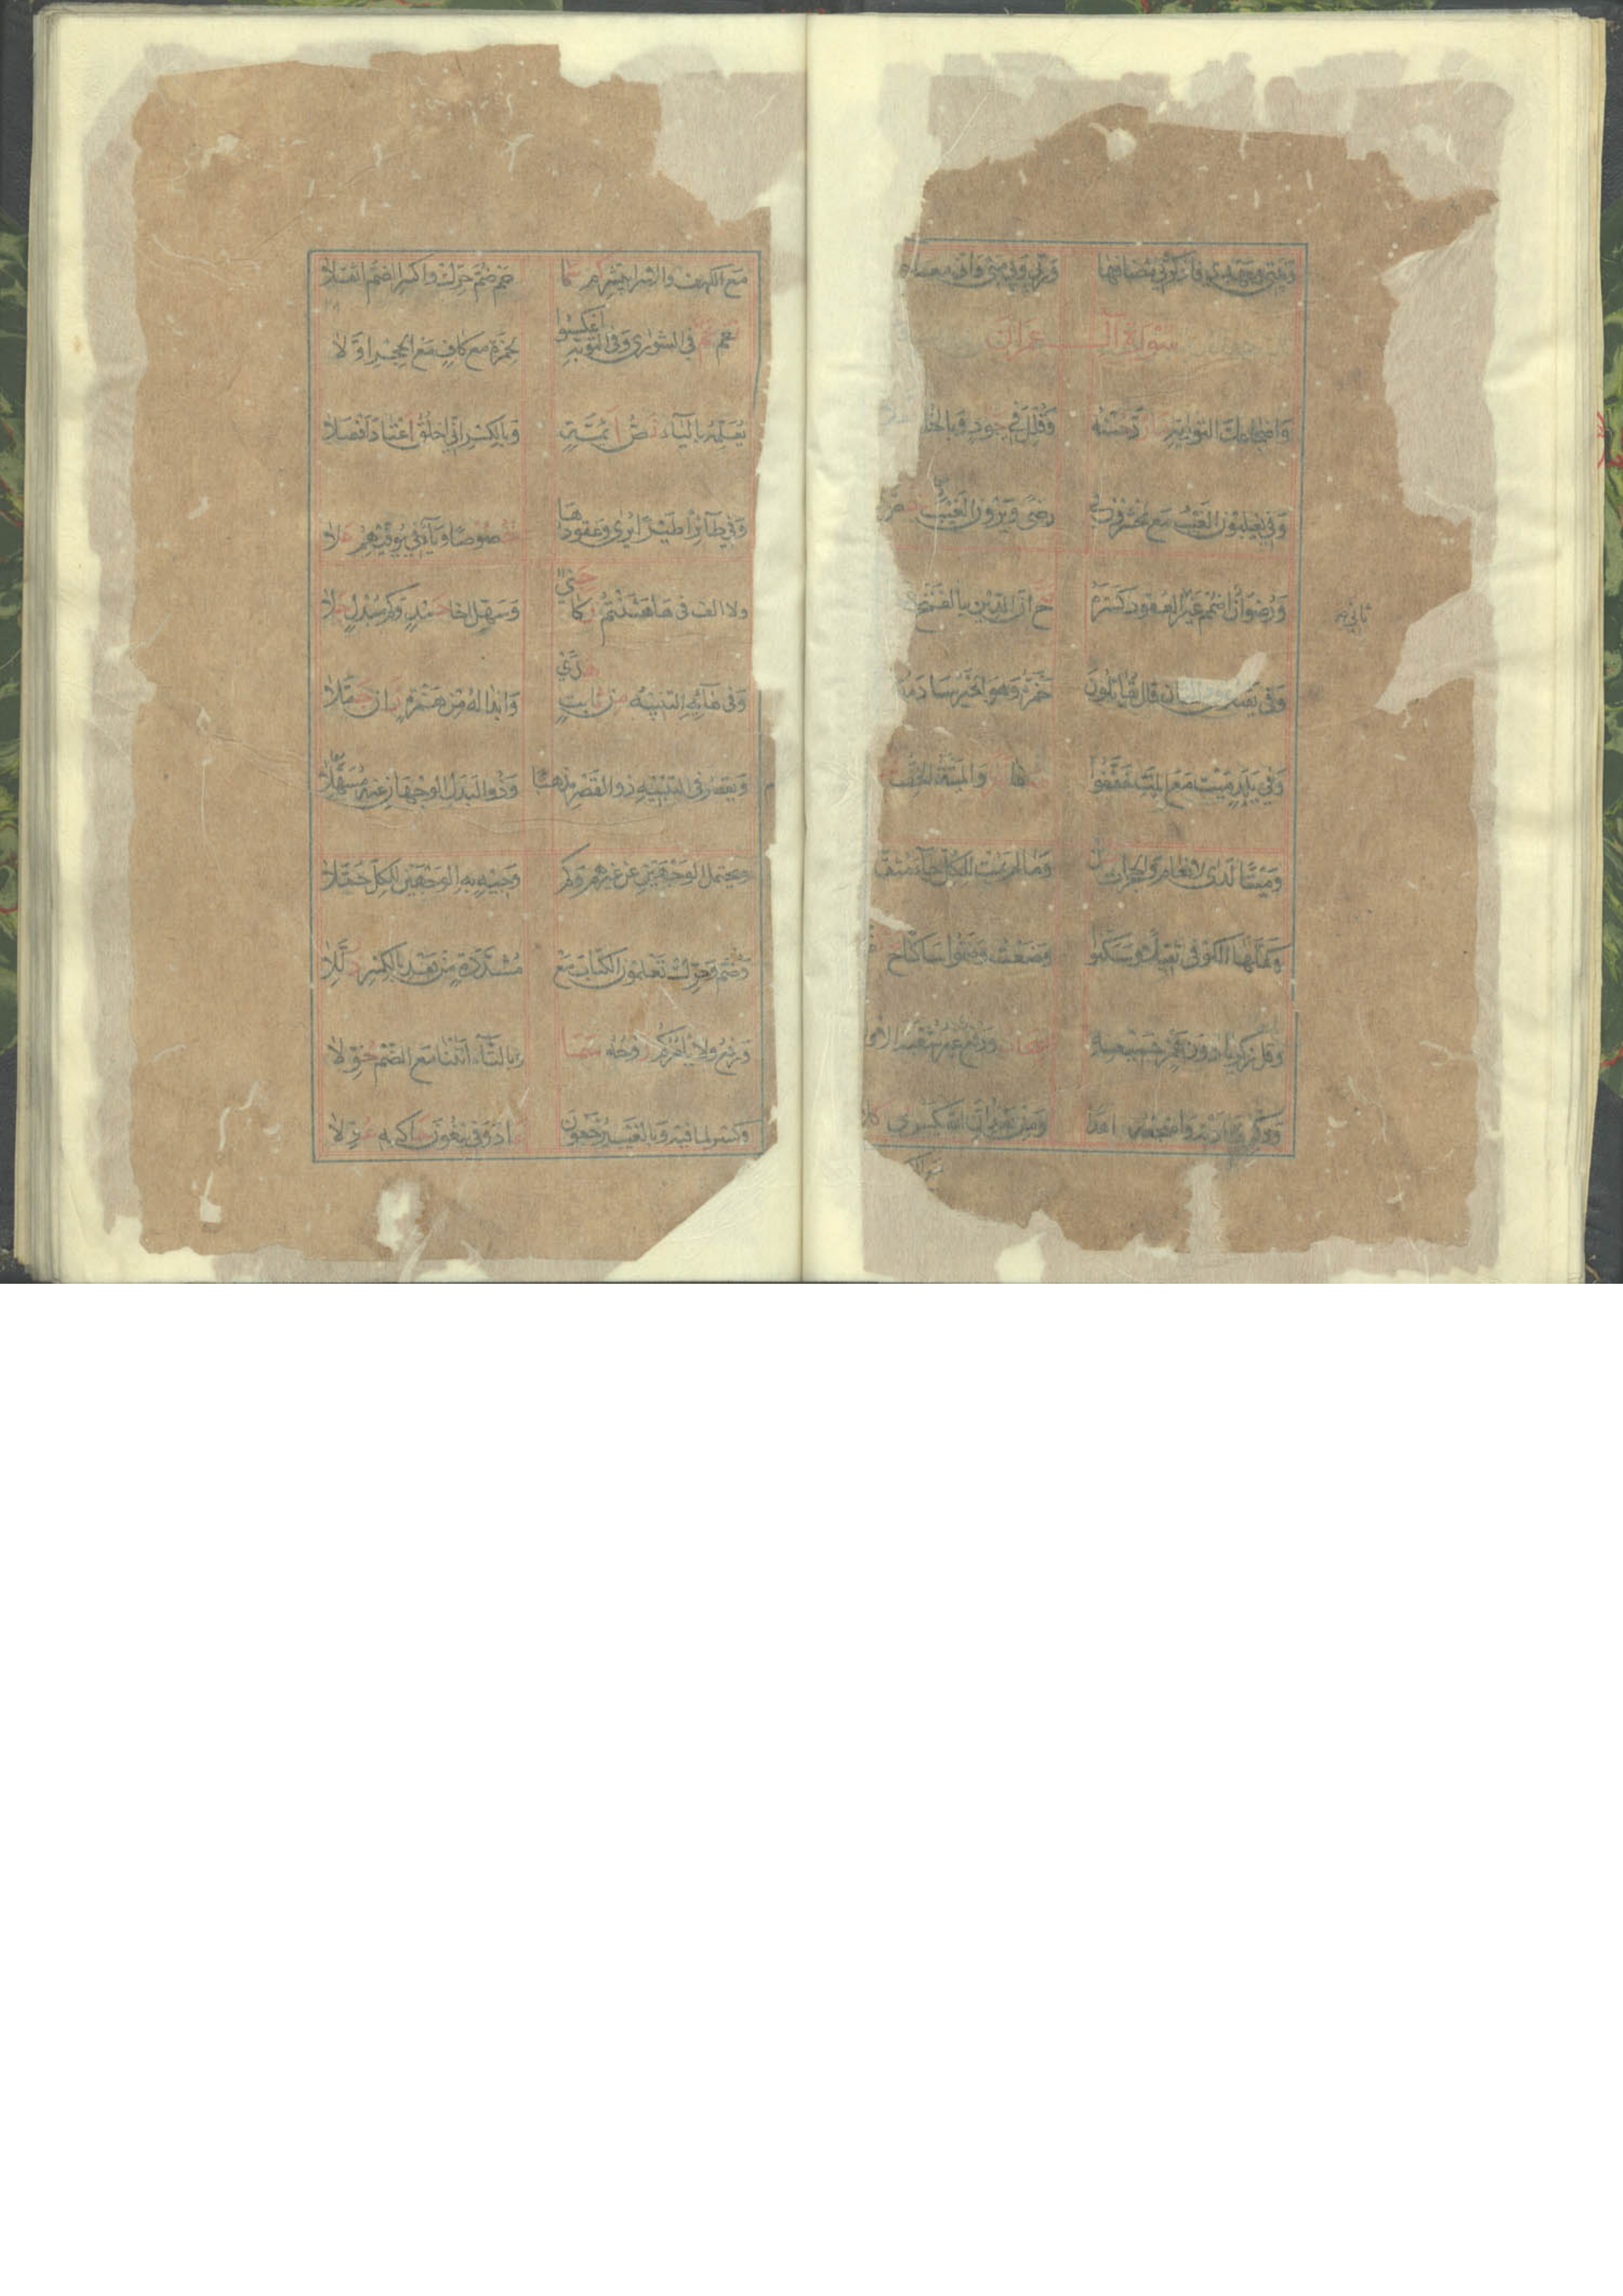 وبيتي وعهدي فاذكروني مضافها وربي وبي مني واني معا
سورة آل عمران
وَاضجاعك التورية ما رُدّ حُسْنُه وَقُلِّلَ في جَودٍ وَبالخُلـ
وَفي يغلبون الغَيْبُ مَع يحشرون في رضًى وَيَرَوْنَ الغَيْبُ خص
وَرضْوَانٌ اضْمُمْ غَيْرَ العقود كسْرَهُ صح اِنّ الدّين بالفَتْح
وفي يقتلون الثان قال يُقاتلونَ حَمْزَةُ وَهوَ الحَبْرُ سَادَ مُقـ
وفي بَلَدٍ مَيْتٍ مَعَ المَيْتِ خَفَّفُوا والميْتَةُ الخف
وَمَيْتًا لَدَى الانعام وَالحجرات وَمَا لم يمُت للكلّ جَآءَ مُثقّـ
وَكَفَّلَهَا الكوفي ثقيلًا وَسَكَّنُوا وَضَعْتُ وَضمُّوا سَاكنًا صح
وَقل زكريا دون همز جميعه صحاب ورفع غير شعبة الاو
وذكر فناداه واضجعه ومن بعد ان الله يكسر في كلا
ثاني
مَع الكهف والاسرا يبشركم نعم ضمّ حرّك واكسر الضمّ اثقلا
نعم عم في الشورى وَفي التوبة اعكسوا لحَمْزَة مع كافٍ مَعَ الحِجْرِ اوّلا
يُعَلّمُه باليآء نصّ ائمّةٍ وَبالكسْر انّي اخْلُقُ اعْتادَ افصلا
وَفي طآئرًا طَيرًا بها وعقودها خصوصًا ويآءٌ في يُوَفّيهم علا
ولا الف في ها هَأنْتُمْ زكا جنًى وَسَهّل اخا حَمْدٍ وكم مُبْدِلٍ جلا
وَفي هآئه التنبيه من ثابتٍ هدًى وابْداله من هَمْزةٍ زان جمّلا
وَيقصر في التنبيه ذو القَصْر مذهبًا وَذو البَدل الوجْهان عنه مسَهّلا
ويحتمل الوجهين عن غيرهم وكم وَجيهٍ به الوَجْهَين للكلّ حَمّلا
وَضُمّ وحرّك تعلمون الكتاب مَعْ مشدّدةٍ من بعد بالكسْر ذلّلا
ورفع ولا يأمركم روحه سَمَا وبالتآء آتينا مَعَ الضمّ خوّلا
وكسر لما فيه وبالغيب يرجعون عاد وفي يبغون حاكيه عوّلا